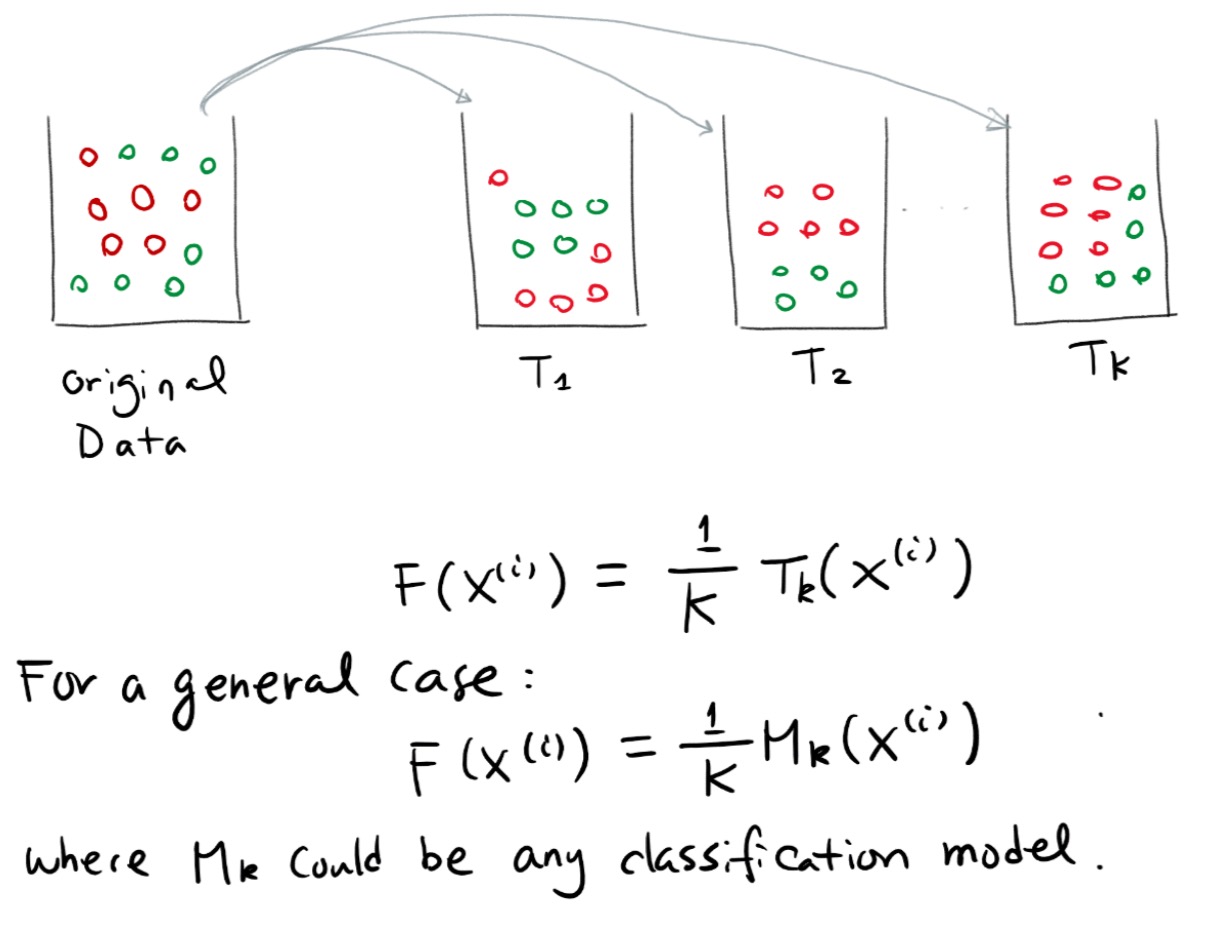 original
Data
T1
T2
. . . .
Tk
F(x⁽ⁱ⁾) = 1/K Tk(x⁽ⁱ⁾)
For a general case:
F(x⁽ⁱ⁾) = 1/K Mk(x⁽ⁱ⁾)
where Mk could be any classification model.